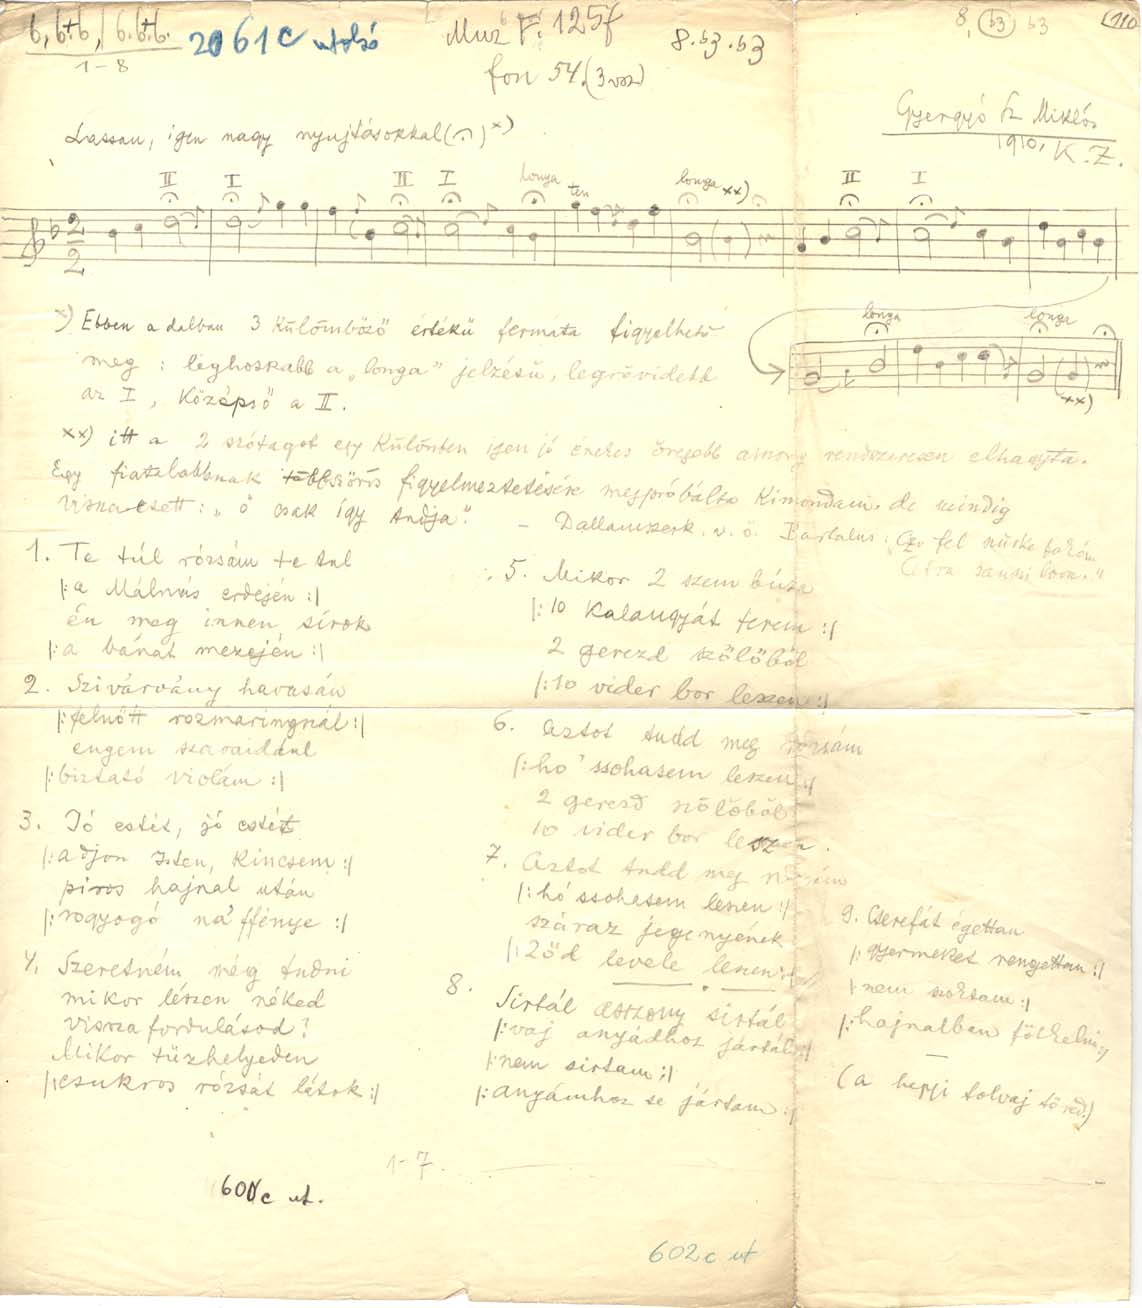 6, 6+6, 6.6+6.
1-8
2061c utolsó
Muz F. 125f
fon 54. (3 vsz)
8.b3.b3
8, b3 b3
110
Gyergyó Sz Miklós
1910, K. Z.
Lassan, igen nagy nyujtásokkal ( ) x)
II I II I longa ten longa xx) II I
longa longa
xx)
x) Ebben a dalban 3 különböző értékű fermáta figyelhető
meg: leghosszabb a „longa" jelzésű, legrövidebb
az I, Középső a II.
xx) itt a 2 szótagot egy különben igen jó énekes öregebb asszony rendszeresen elhagyta.
Egy fiatalabbnak többszörös figyelmeztetésére megpróbálta kimondani, de mindig
visszaesett: „ő csak így tudja." – Dallamszerk. v. ö. Bartalus:
fel szürke
1. Te túl rózsám te tul
|: a Málnás erdején :|
én meg innen sírok
|: a bánat mezején :|
2. Szivárvány havasán
|: felnőtt rozmaringszál :|
engem szavaiddal
|: biztató violám :|
3. Jó estét, jó estét
|: adjon Isten, Kincsem :|
piros hajnal után
|: ragyogó na'ffénye :|
4. Szeretném még tudni
mikor lészen néked
visszafordulásod?
Mikor tüzhelyeden
|: csukros rózsát látok :|
5. Mikor 2 szem búza
|: 10 Kalangyát terem :|
2 gerezd szőlőből
|: 10 vider bor leszen :|
6. Aztot tudd meg rózsám
|: ho' ssohasem leszen :|
2 gerezd szőlőből
10 vider bor leszen.
7. Aztot tudd meg rózsám
|: hó ssohasem leszen :|
száraz jegenyének
|: Zöd levele leszen :|
8. Sirtál asszony sirtál
|: vaj anyádhoz jártál :|
|: nem sirtam :|
|: anyámhoz se jártam :|
9. Cserefát égettem
|: gyermeket rengettem :|
|: nem szoktam :|
|: hajnalban fölkelni :|
(a heppi tolvaj töred.)
1-7.
600c ut.
602c ut